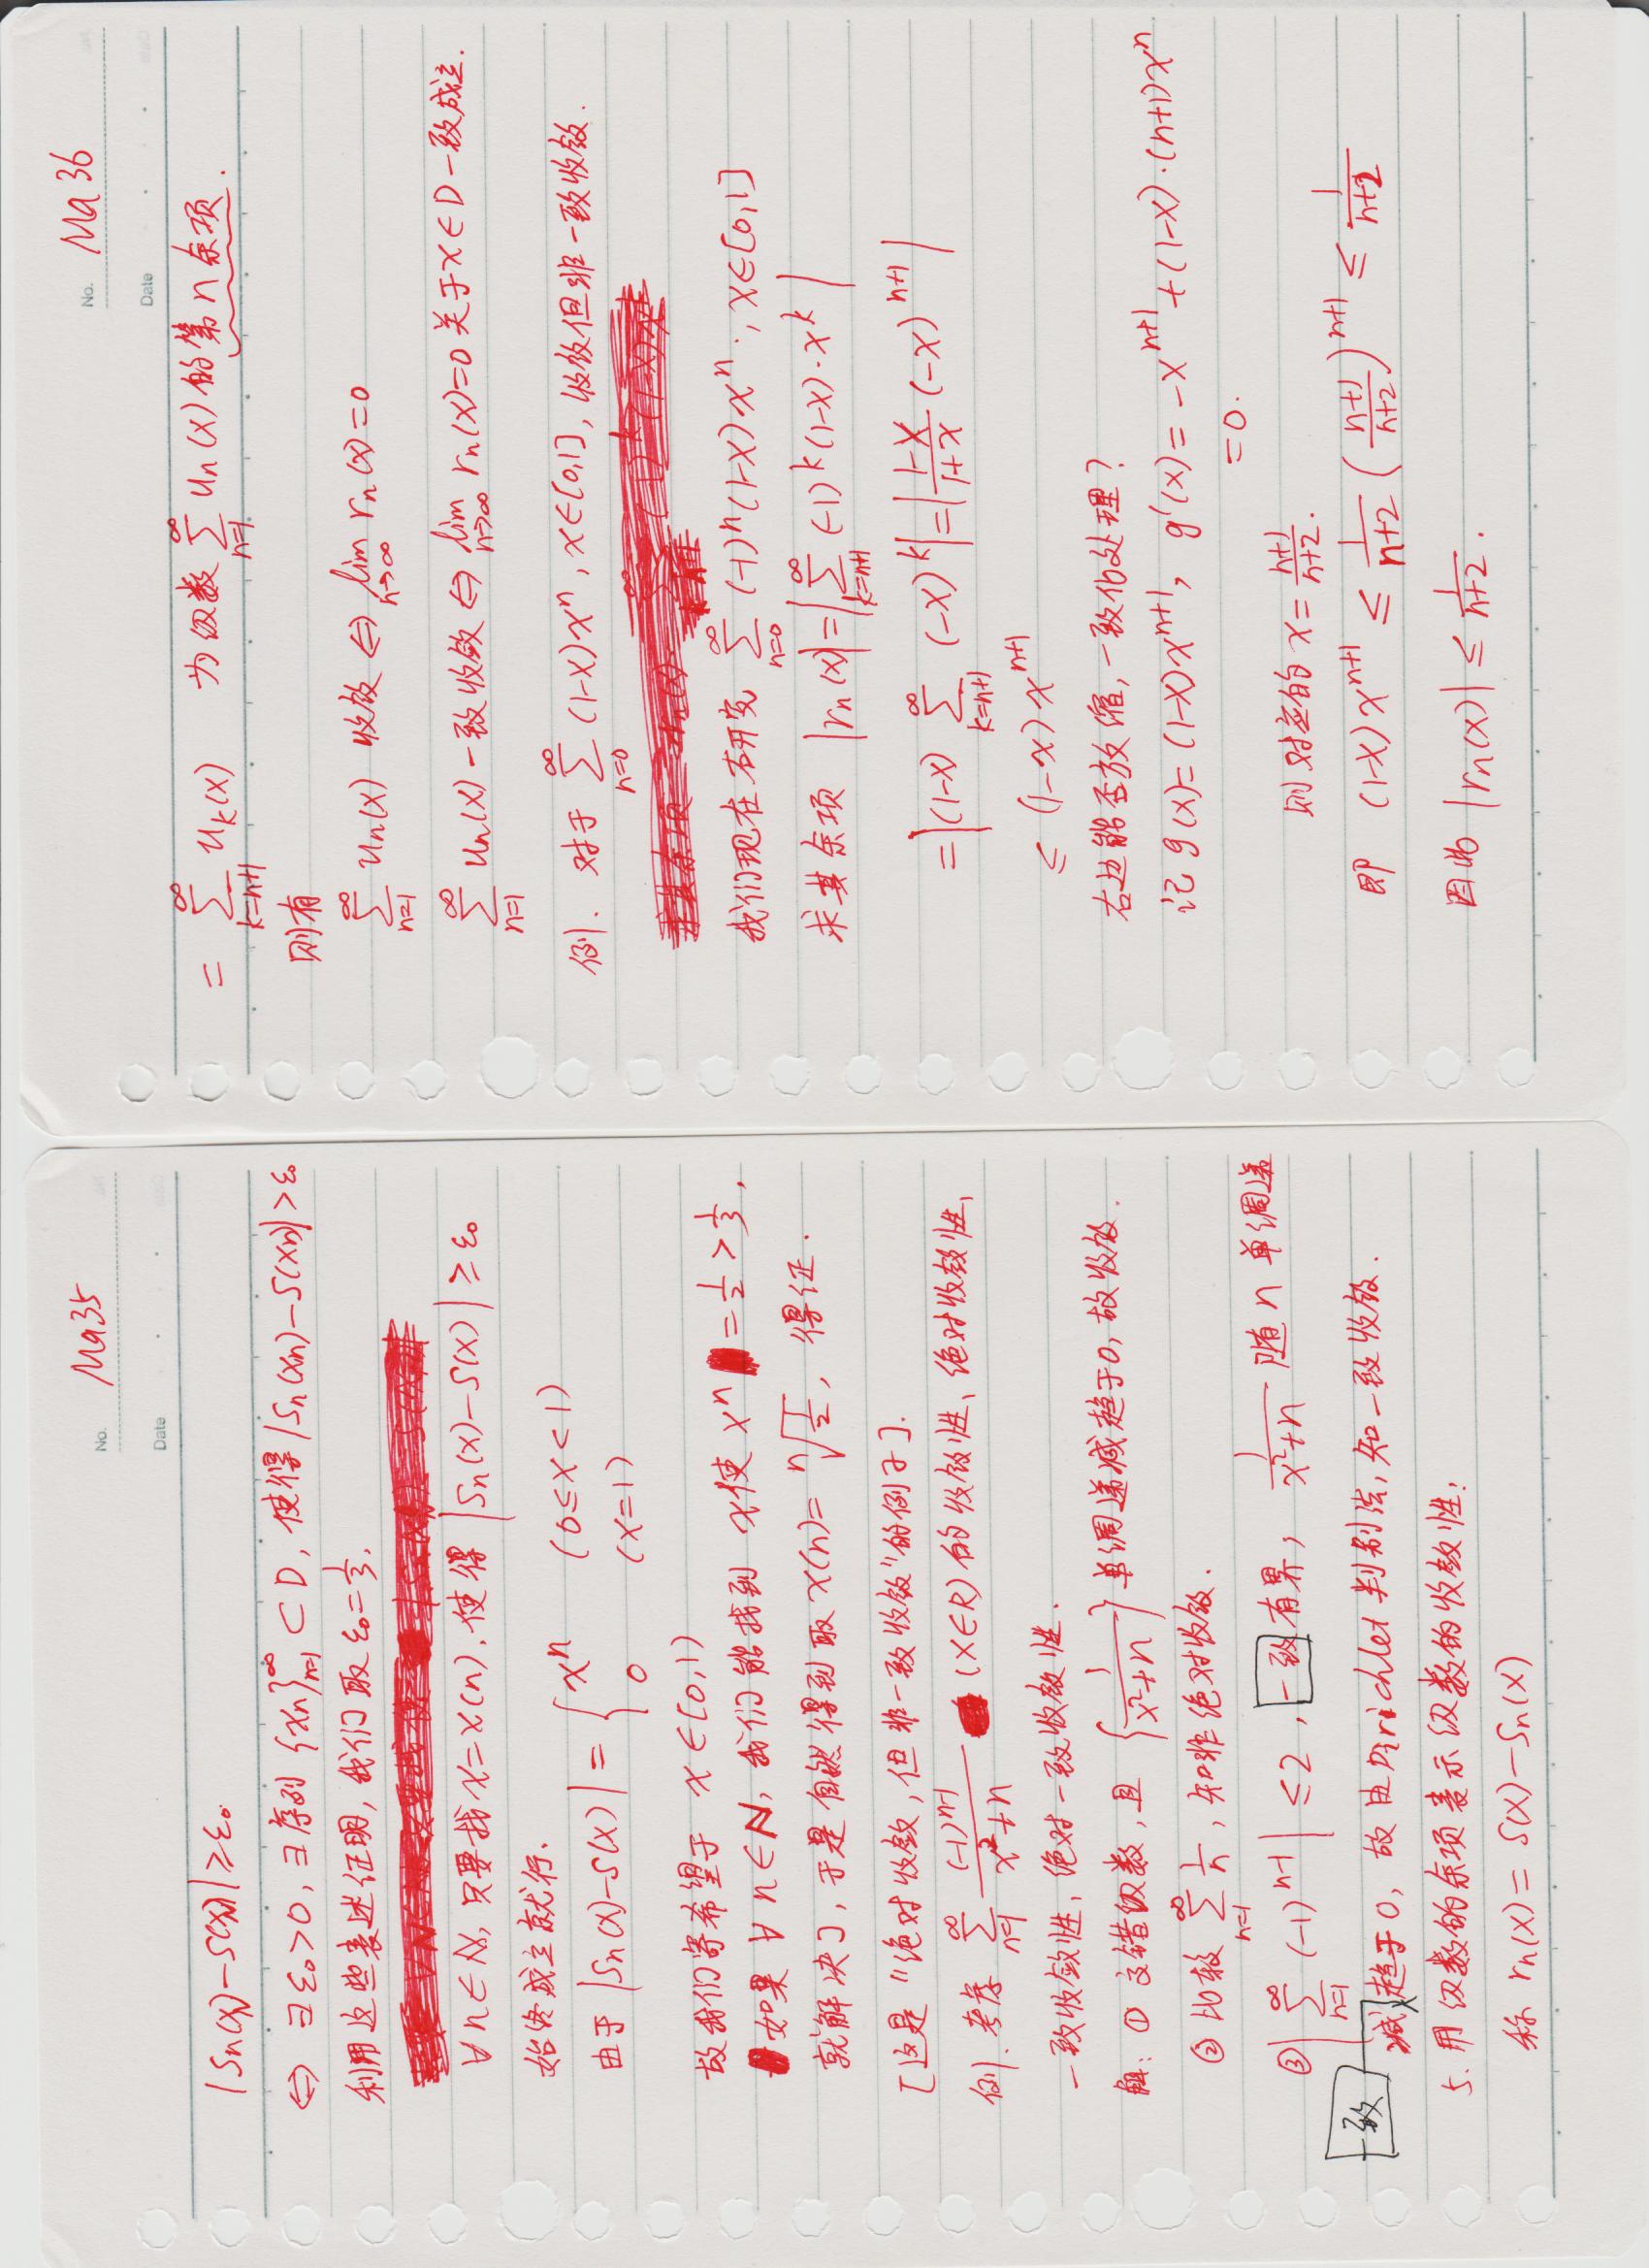 No. Ma35
Date
|Sn(x)-S(x)|≥ε₀
⇔ ∃ε₀>0, ∃序列 {xn}_{n=1}^∞ ⊂ D, 使得 |Sn(xn)-S(xn)|>ε₀
利用这些表述证明, 我们取 ε₀=1/3.
∀n∈N, 只要找 x=x(n), 使得 |Sn(x)-S(x)|≥ε₀
始终成立就行.
由于 |Sn(x)-S(x)| = { x^n (0≤x<1)
0 (x=1)
故我们寄希望于 x∈[0,1)
如果 ∀n∈N, 我们能找到 x使 x^n = 1/2 > 1/3,
就解决了, 于是自然得到取 x(n)= ⁿ√(1/2), 得证.
[这是"绝对收敛, 但非一致收敛"的例子].
例. 考虑 ∑_{n=1}^∞ (-1)^{n-1}/(x²+n) (x∈R) 的收敛性、绝对收敛性、
一致收敛性, 绝对一致收敛性.
解: ① 交错级数, 且 {1/(x²+n)} 单调递减趋于0, 故收敛.
② 比较 ∑_{n=1}^∞ 1/n, 知非绝对收敛.
③ |∑_{n=1}^∞ (-1)^{n-1}| ≤2, 一致有界, 1/(x²+n) 随 n 单调递
一致
减趋于0, 故由Dirichlet判别法, 知一致收敛.
5. 用级数的余项表示级数的收敛性:
称 rn(x)= S(x)-Sn(x)
No. Ma36
Date
= ∑_{k=n+1}^∞ u_k(x) 为级数 ∑_{n=1}^∞ un(x) 的第n余项.
则有
∑_{n=1}^∞ un(x) 收敛 ⇔ lim_{n→∞} rn(x)=0
∑_{n=1}^∞ un(x) 一致收敛 ⇔ lim_{n→∞} rn(x)=0 关于x∈D一致成立.
例. 对于 ∑_{n=0}^∞ (1-x)x^n, x∈[0,1], 收敛但非一致收敛.
我们现在右研究 ∑_{n=0}^∞ (-1)^n(1-x)x^n, x∈[0,1]
求其余项 |rn(x)|=|∑_{k=n+1}^∞ (-1)^k(1-x)·x^k|
=|(1-x) ∑_{k=n+1}^∞ (-x)^k|=|(1-x)/(1+x) (-x)^{n+1}|
≤ (1-x)x^{n+1}
右边能否放缩, 一致化处理?
记 g(x)=(1-x)x^{n+1}, g'(x)= -x^{n+1}+(1-x)·(n+1)x^n
=0.
则对应的 x= (n+1)/(n+2).
即 (1-x)x^{n+1} ≤ 1/(n+2) ((n+1)/(n+2))^{n+1} ≤ 1/(n+2)
因此 |rn(x)| ≤ 1/(n+2).